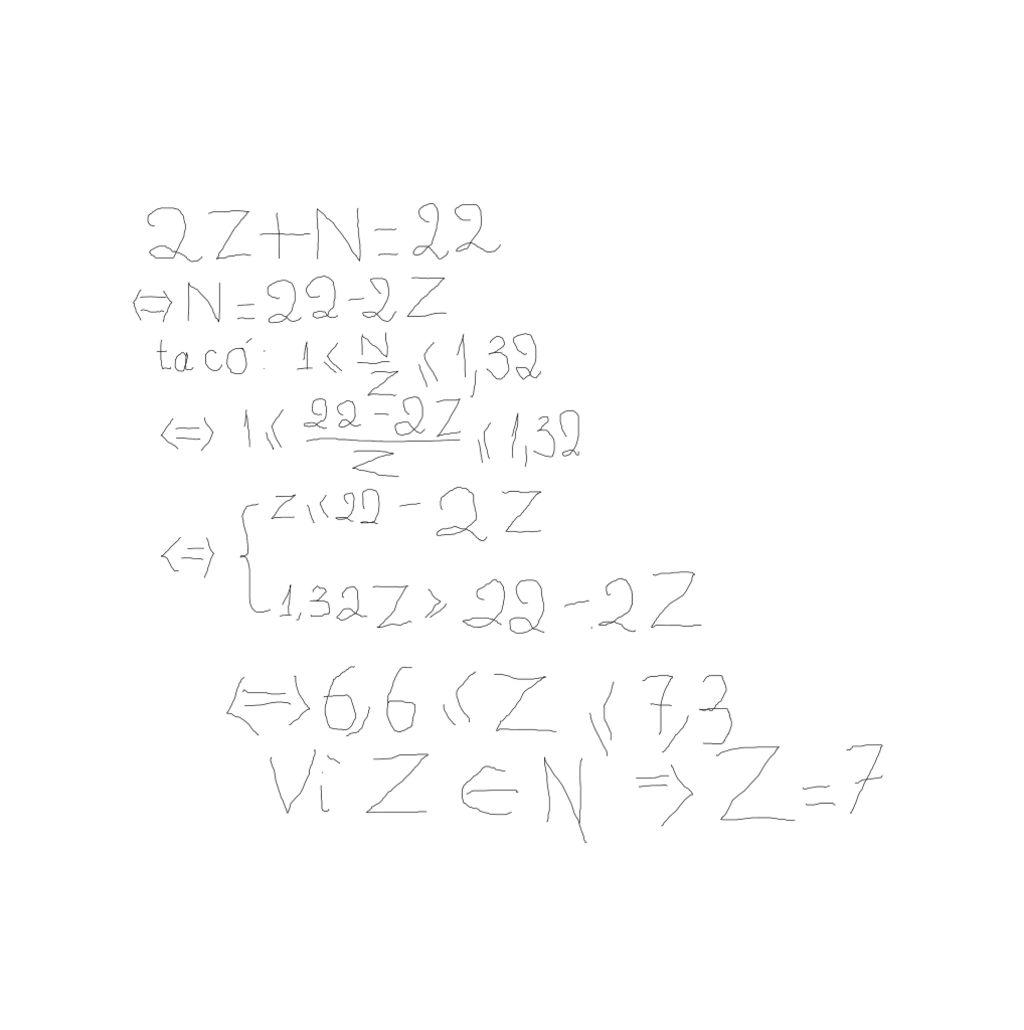 2Z+N=22
⇔ N=22-2Z
ta có: 1 ≤ N/Z ≤ 1,32
⇔ 1 ≤ (22-2Z)/Z ≤ 1,32
⇔ { Z ≤ 22 - 2Z
1,32Z ≥ 22 - 2Z
⇔ 6,6 ≤ Z ≤ 7,3
Vì Z ∈ N ⇒ Z = 7